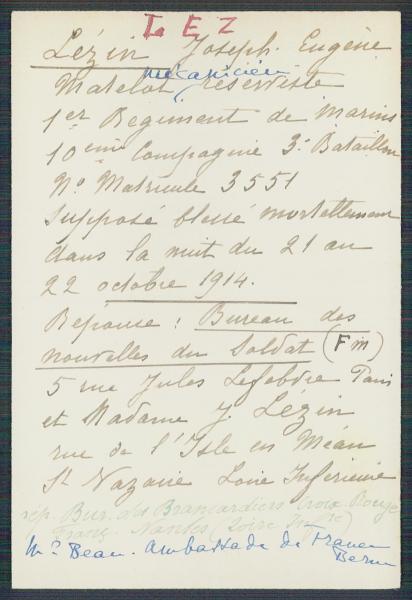 LEZ
Lézin Joseph Eugène
mécanicien
Matelot réserviste
1er Régiment de Marins
10eme Compagnie 3e Bataillon
No Matricule 3551
Supposé blessé mortellement
dans la nuit du 21 au
22 octobre 1914.
Réponse : Bureau des
nouvelles du Soldat (Fm)
5 rue Jules Lefebvre Paris
et Madame J. Lézin
rue de l'Isle en Méan
St Nazaire Loire Inférieure
rep. Bur. des Brancardiers Croix Rouge
Franç. Nantes (Loire Infre)
Mr Beau. Ambassade de France
Berne